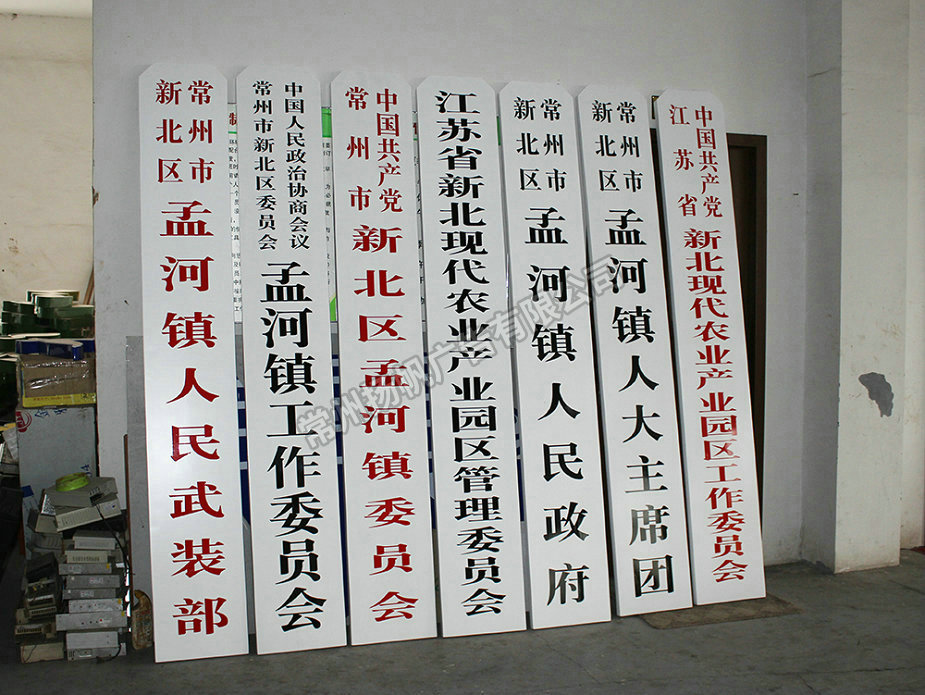 常州市
新北区
孟河镇人民武装部
中国人民政治协商会议
常州市新北区委员会
孟河镇工作委员会
中国共产党
常州市
新北区孟河镇委员会
江苏省新北现代农业产业园区管理委员会
常州市
新北区
孟河镇人民政府
常州市
新北区
孟河镇人大主席团
中国共产党
江苏省
新北现代农业产业园区工作委员会
常州扬帆广告有限公司